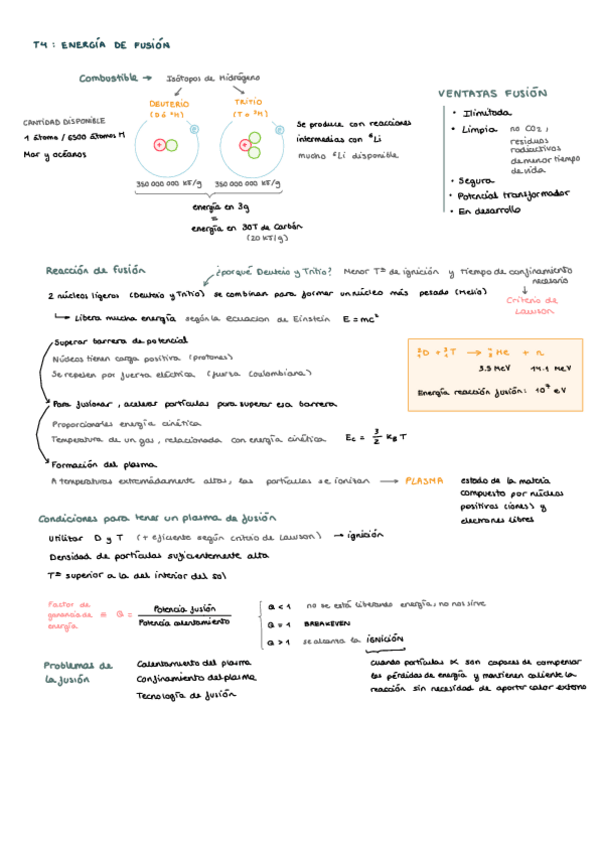 T4: ENERGÍA DE FUSIÓN
Combustible → Isótopos de Hidrógeno
DEUTERIO
(D ó ²H)
TRITIO
(T o ³H)
CANTIDAD DISPONIBLE
1 átomo / 6500 átomos H
Mar y océanos
Se produce con reacciones
intermedias con ⁶Li
mucho ⁶Li disponible
350 000 000 KJ/g
350 000 000 KJ/g
energía en 3g
=
energía en 30T de Carbón
(20 KJ/g)
VENTAJAS FUSIÓN
• Ilimitada
• Limpia no CO₂,
residuos
radiactivos
de menor tiempo
de vida
• Segura
• Potencial transformador
• En desarrollo
Reacción de fusión
¿porqué Deuterio y Tritio? Menor Tª de ignición y tiempo de confinamiento
necesario
Criterio de
Lawson
2 núcleos ligeros (Deuterio y Tritio) se combinan para formar un núcleo más pesado (Helio)
Libera mucha energía según la ecuacion de Einstein E = mc²
Superar barrera de potencial
Núcleos tienen carga positiva (protones)
Se repelen por fuerza eléctrica (fuerza Coulombiana)
²₁D + ³₁T → ⁴₂He + n
3.5 MeV 14.1 MeV
Energía reacción fusión: 10⁷ eV
Para fusionar, acelerar partículas para superar esa barrera
Proporcionarles energía cinética
Temperatura de un gas, relacionada con energía cinética Ec = 3/2 k_B T
Formación del plasma
A temperaturas extremadamente altas, las partículas se ionizan → PLASMA
estado de la materia
compuesto por núcleos
positivos (iones) y
electrones libres
Condiciones para tener un plasma de fusión
Utilizar D y T (+ eficiente según criterio de Lawson) → ignición
Densidad de partículas suficientemente alta
Tª superior a la del interior del sol
Factor de
ganancia de
energía
= Q = Potencia fusión / Potencia calentamiento
Q < 1 no se está liberando energía, no nos sirve
Q = 1 BREAKEVEN
Q > 1 se alcanza la IGNICIÓN
cuando partículas α son capaces de compensar
las pérdidas de energía y mantienen caliente la
reacción sin necesidad de aportar calor externo
Problemas de
la fusión
Calentamiento del plasma
Confinamiento del plasma
Tecnología de fusión